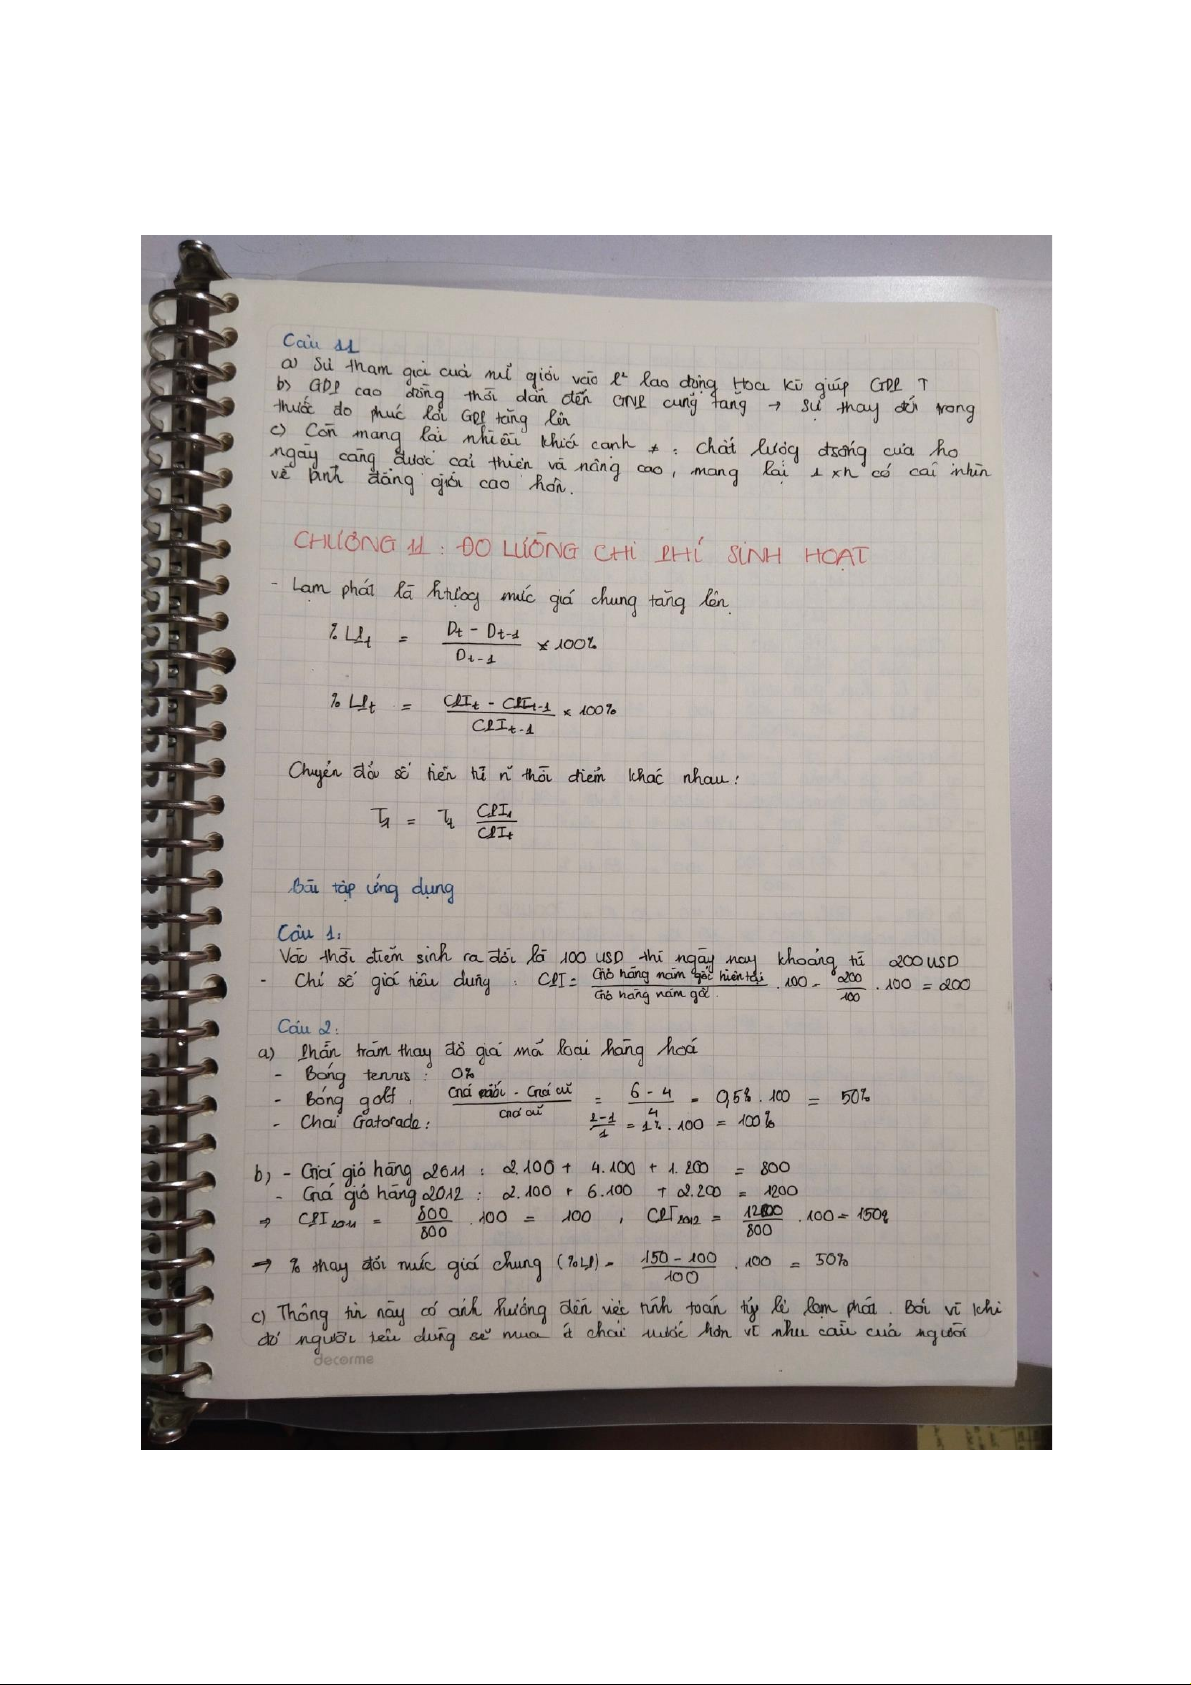 Câu 11
a) Sự tham gia của nữ giới vào l² lao động Hoa Kỳ giúp GDP ↑
b) GDP cao đồng thời dẫn đến GNP cũng tăng → sự thay đổi trong
thước đo phúc lợi GDP tăng lên
c) Còn mang lại nhiều khía cạnh ≠ : Chất lượng đsống của họ
ngày càng được cải thiện và nâng cao, mang lại 1 xh có cái nhìn
về bình đẳng giới cao hơn.
CHƯƠNG 11 : ĐO LƯỜNG CHI PHÍ SINH HOẠT
- Lạm phát là htượng mức giá chung tăng lên.
% LPt = (Dt - Dt-1) / Dt-1 × 100%
% LPt = (CPIt - CPIt-1) / CPIt-1 × 100%
Chuyển đổi số tiền từ n thời điểm khác nhau :
T1 = Tt CPI1 / CPIt
Bài tập ứng dụng
Câu 1:
Vào thời điểm sinh ra đời là 100 USD thì ngày nay khoảng từ 200 USD
- Chỉ số giá tiêu dùng : CPI = Giỏ hàng năm gốc hiện tại / Giỏ hàng năm gốc . 100 = 200/100 . 100 = 200
Câu 2:
a) Phần trăm thay đổ giá mỗ loại hàng hoá
- Bóng tennis : 0%
- Bóng golf : (Giá mới - Giá cũ) / Giá cũ = (6 - 4) / 4 = 0,5% . 100 = 50%
- Chai Gatorade : (2-1)/1 = 1% . 100 = 100%
b) - Giá giỏ hàng 2011 : 2.100 + 4.100 + 1.200 = 800
- Giá giỏ hàng 2012 : 2.100 + 6.100 + 2.200 = 1200
⇒ CPI2011 = 800/800 . 100 = 100 , CPI2012 = 1200/800 . 100 = 150%
⇒ % thay đổi mức giá chung (%LP) = (150 - 100) / 100 . 100 = 50%
c) Thông tin này có ảnh hưởng đến việc tính toán tỷ lệ lạm phát. Bởi vì khi
đó người tiêu dùng sẽ mua ít chai nước hơn vì nhu cầu của người
decorme